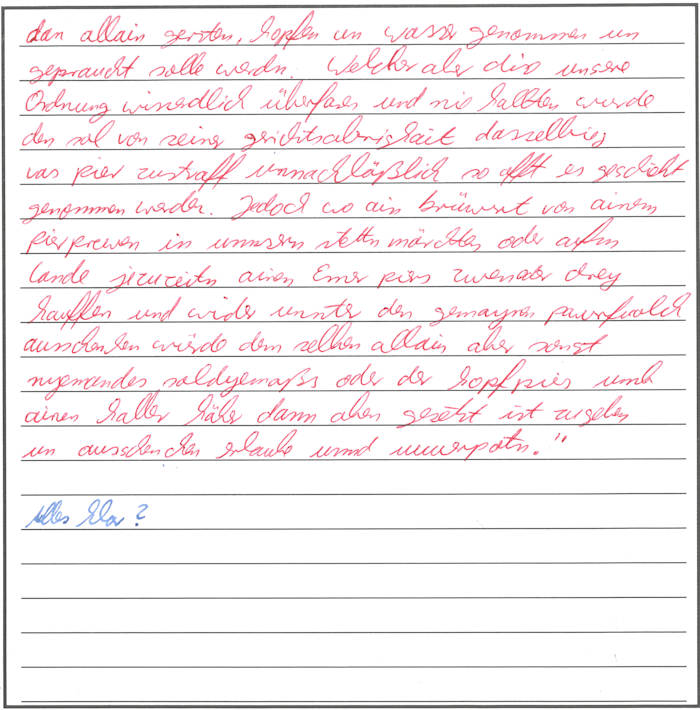 dan allain gersten, hopfen un wasser genommen un
gepraucht solle werdn. Welcher aber dise unsere
Ordnung wissendlich überfaren und nie hallten wurde
den sol von seiner gerichtsabrigkait dasselbig
vas pier zustraff unnachläßlich so offt es geschieht
genommen werden. Jedoch wo ain brüwirt von ainem
pierprewen in unnsern stettn märckten oder aufm
Lande jezuzeitn ainen Emer piers zwen oder drey
kauffen und wider unnter den gemaynen pawrfvolck
ausschenken würde dem selben allain aber sonst
nyemandes soldyemaßs oder der kopf piers umb
ainen haller häher dann oben gesetzt ist zegeben
un ausschencken erlaubt unnd unverpotn."
Alles klar?